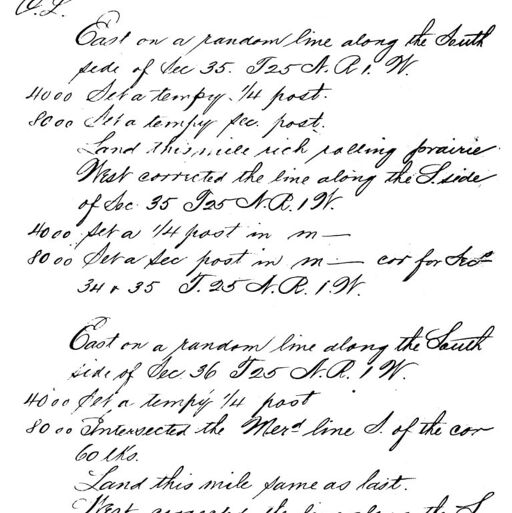 East on a random line along the South
side of Sec 35. T25 N. R. 1. W.
4000 Set a tempy. 1/4 post.
8000 Set a tempy sec. post.
Land this mile rich rolling prairie
West corricted the line along the S. side
of Sec. 35 T25 N. R. 1 W.
4000 Set a 1/4 post in m—
8000 Set a Sec post in m— cor for Secs
34 & 35 T. 25 N. R. 1. W.
East on a random line along the South
side of Sec 36 T25 N. R. 1 W.
4000 Set a tempy 1/4 post
8000 Intersected the Merd line S. of the cor
60 lks.
Land this mile same as last.
West the line along the S